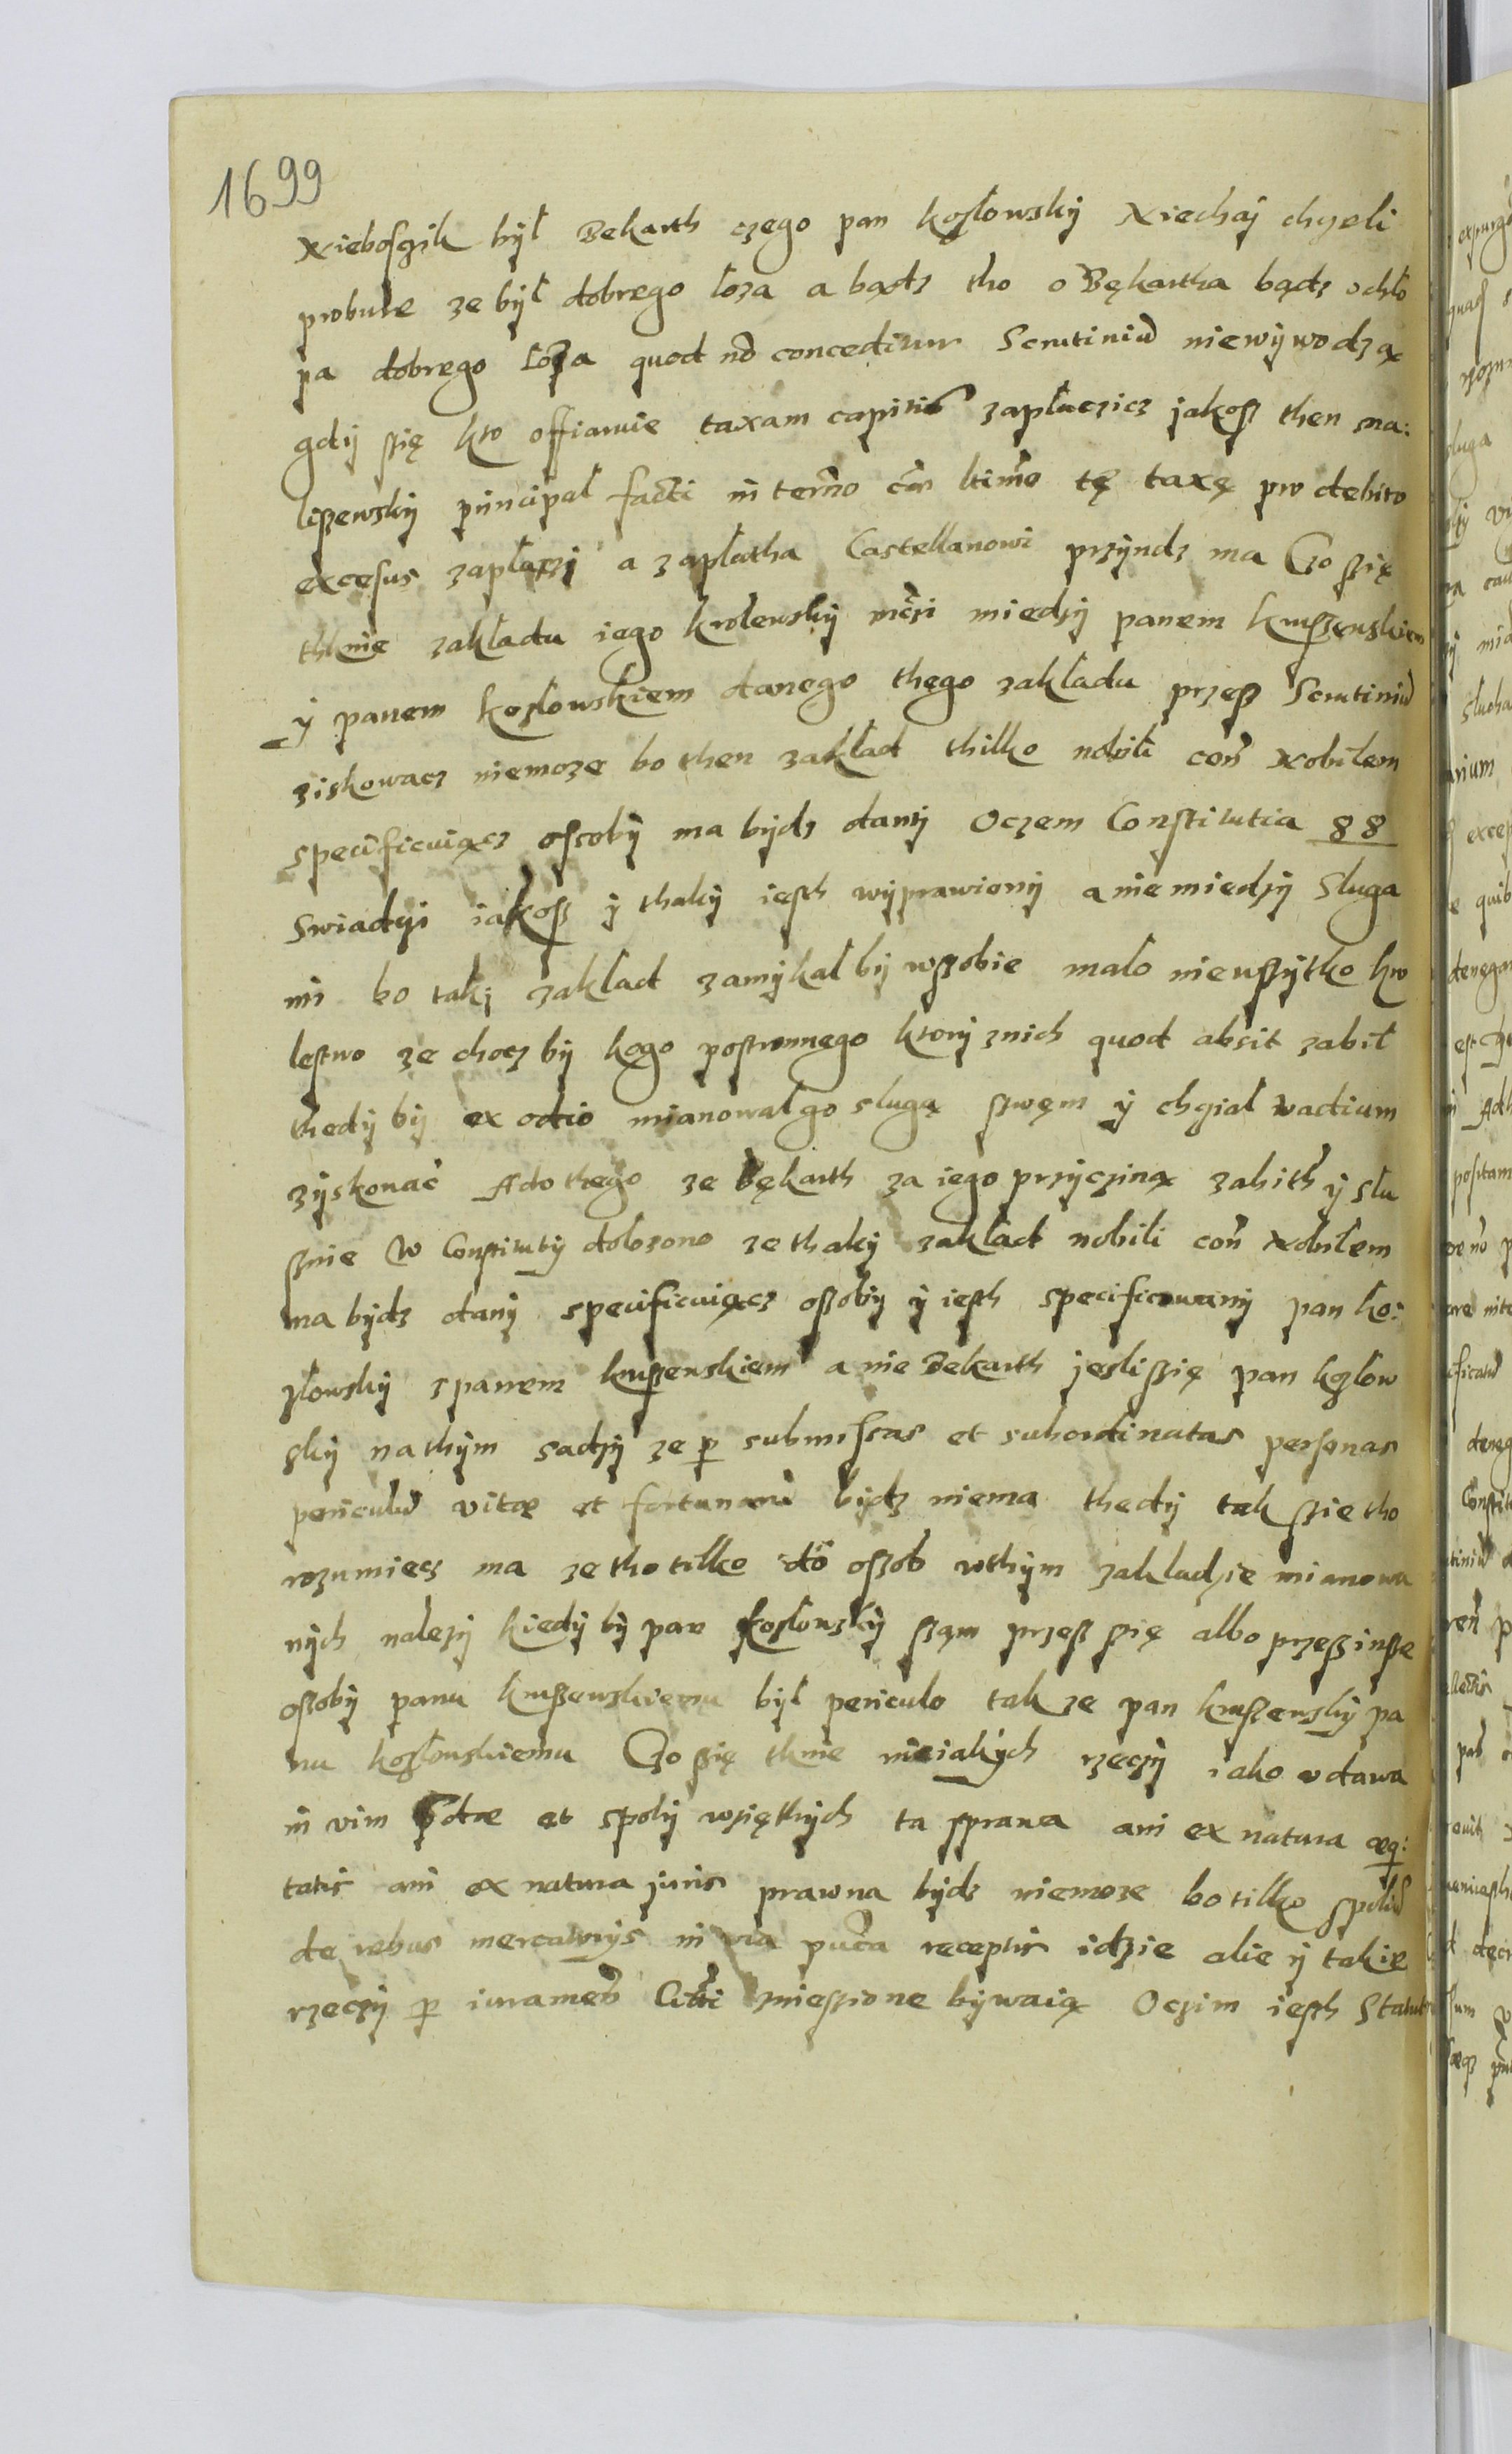 1699
Xieboſczik był Bekarth czego pan koſlowsky Xiechaj chczeli
probuie ze był dobrego loza a bądz tho o Bękartha bądz ochło
pa dobrego Loza quod nō conceditur Scrutiniū niewywodzą
gdy ſzię kto offiaruie taxam capitis zapłaczicz jakoſz then ma:
liszewsky principal facti in termō cūr ltimō tę taxę pro debito
exceſus zapłaczy a zapłatha Castellanowi przyndz ma Czo ſzię
thknie zakładu iego krolewsky mczi miedzy panem kruſzenskiem
y panem koſlowskiem danego thego zakładu przeſz Scrutiniū
ziskowacz niemoze bo then zakład thilko nobili con Nobilem
specificuiącz oſsoby ma bydz dany Oczem Conſtitutia 88
Swiadczi iakoſz y thaky ieſth wyprawiony a niemiedzy Sluga
mi bo taki zakład zamykał by wſzobie mało niewſzytko kro
leſtwo ze chocz by kogo postronnego ktory znich quod absit zabił
thedy by ex odio mianował go slugą ſzwęm y chczial vadium
zyskonać Ado thego ze Bękarth za iego przyczyną zabith y słu
ſznie W Conſtituty dołozono ze thaky zakład nobili con Nobilem
ma bydz dany specificuiącz oſzoby y ieſth specificowany pan ko:
złowsky z panem kruſzenskiem a nie Bekarth jeſliſzię pan kozłow
sky na thym sadzy ze p submiſsas et subordinatas personas
periculū vitæ et fortunarū bydz niema thedy tak ſzie tho
rozumiecz ma ze tho tilko do oſzob wthym zakladzie mianowa
nych nalezy kiedy by pan koſlowsky ſzam przeſz ſzię albo przeſz inſze
oſzoby panu kruſzenskiemu był periculo tak ze pan kruſzensky pa
nu kozłowskiemu Czo ſzię tknie nieiakych rzeczy iako udawa
in vim p̄dæ et spoly wziętkych ta sprawa ani ex natura æq:
tatis ani ex natura juris prawna bydz niemoze bo tilko spoliū
de rebus mercatorys in via pub̄ca receptis idzie alie y takie
rzeczy p iuramen̄ Citti znieszione bywaią Oczim ieſth Statut